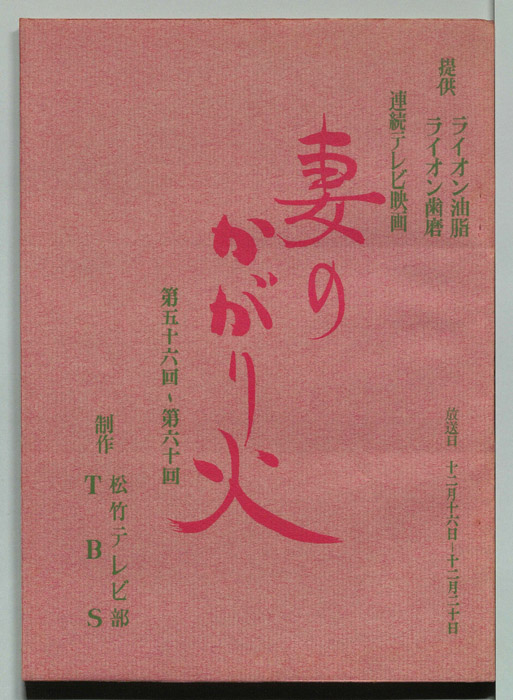 提供 ライオン油脂
ライオン歯磨
連続テレビ映画
妻の
かがり火
第五十六回〜第六十回
放送日 十二月十六日〜十二月二十日
制作 松竹テレビ部
TBS